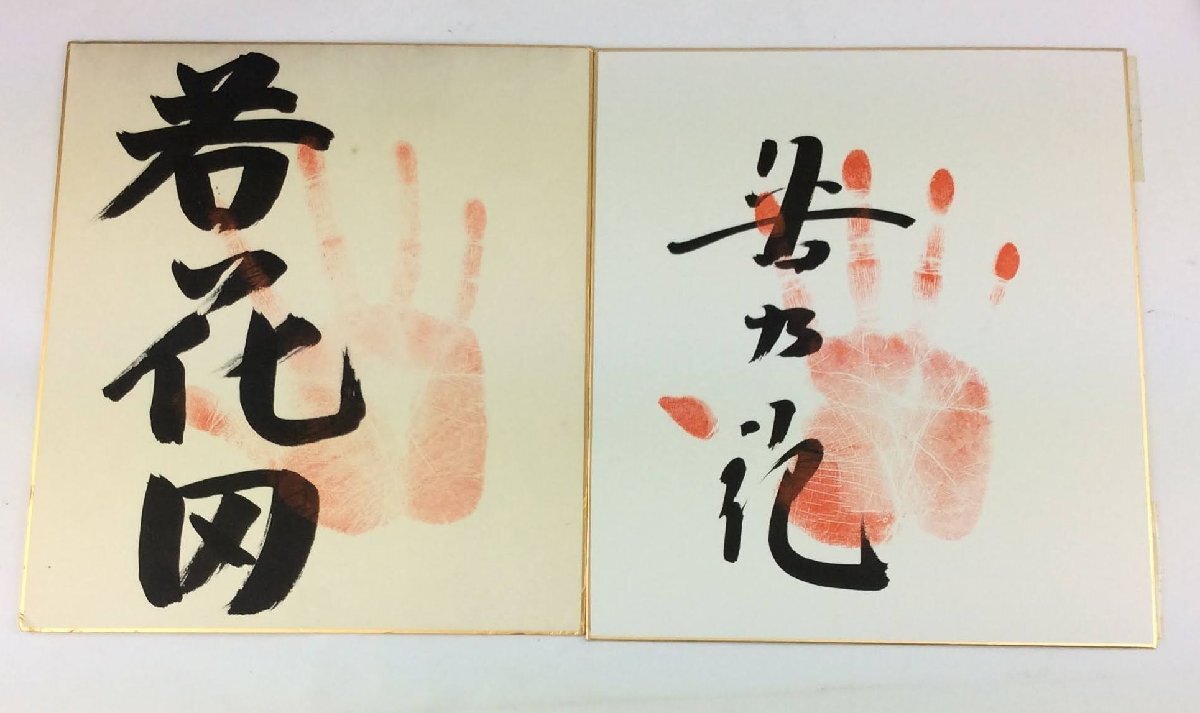 若花田
若乃花